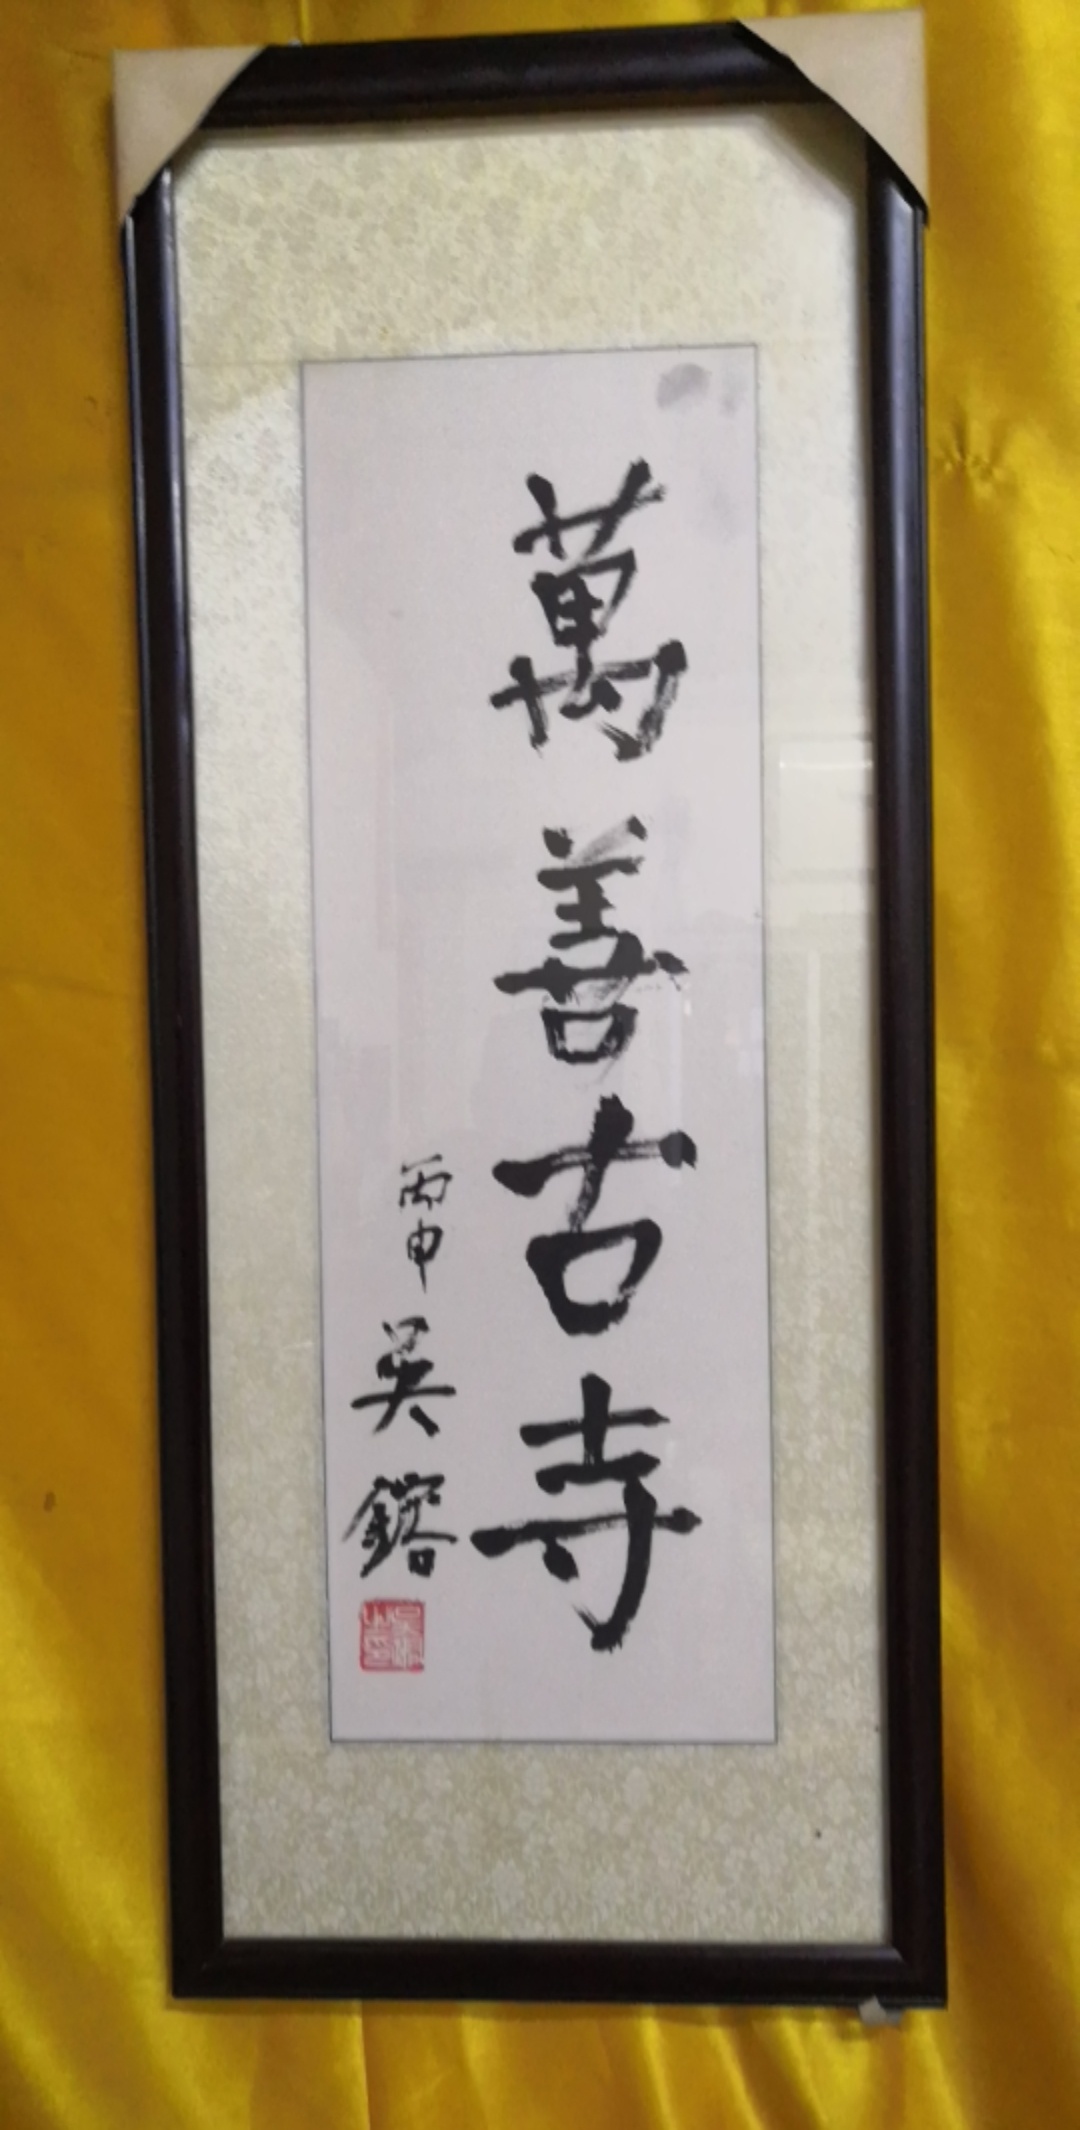 萬善古寺
丙申 吴鎔